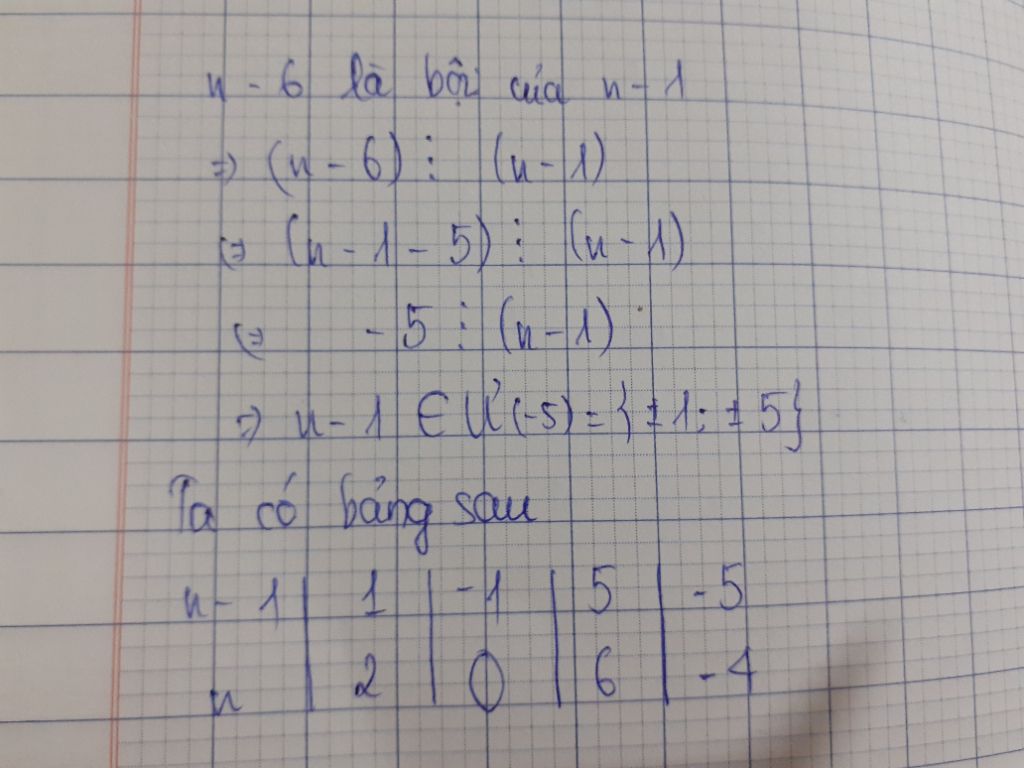 n - 6 là bội của n - 1
=> (n - 6) ⋮ (n - 1)
<=> (n - 1 - 5) ⋮ (n - 1)
<=> - 5 ⋮ (n - 1)
=> n - 1 ∈ Ư(-5) = {±1; ±5}
Ta có bảng sau
n - 1 | 1 | -1 | 5 | -5
n | 2 | 0 | 6 | -4